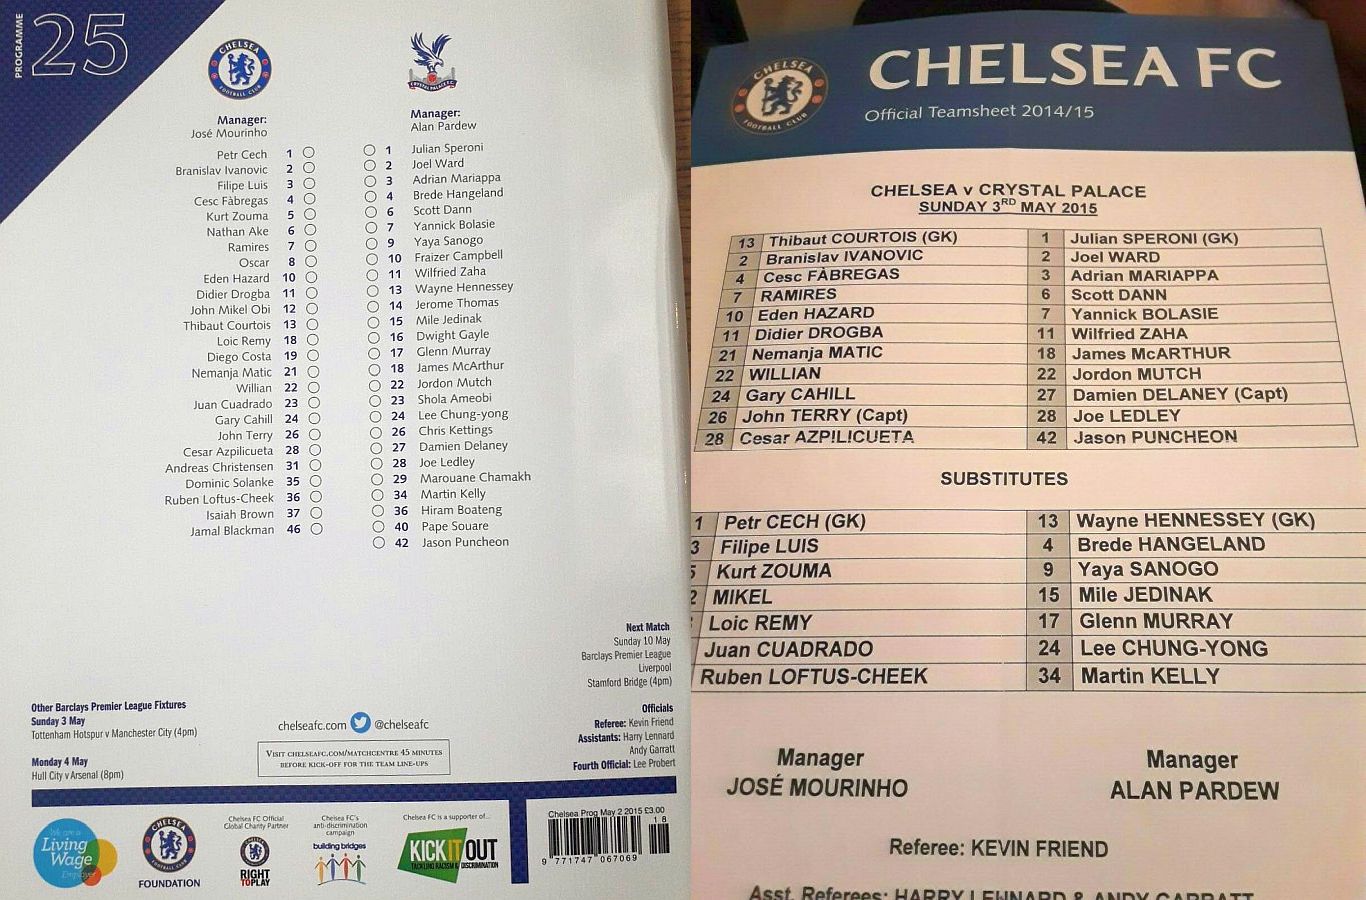 PROGRAMME
25
CHELSEA
FOOTBALL CLUB
CRYSTAL PALACE F.C.
Manager:
José Mourinho
Petr Cech 1
Branislav Ivanovic 2
Filipe Luis 3
Cesc Fàbregas 4
Kurt Zouma 5
Nathan Ake 6
Ramires 7
Oscar 8
Eden Hazard 10
Didier Drogba 11
John Mikel Obi 12
Thibaut Courtois 13
Loic Remy 18
Diego Costa 19
Nemanja Matic 21
Willian 22
Juan Cuadrado 23
Gary Cahill 24
John Terry 26
Cesar Azpilicueta 28
Andreas Christensen 31
Dominic Solanke 35
Ruben Loftus-Cheek 36
Isaiah Brown 37
Jamal Blackman 46
Manager:
Alan Pardew
1 Julian Speroni
2 Joel Ward
3 Adrian Mariappa
4 Brede Hangeland
6 Scott Dann
7 Yannick Bolasie
9 Yaya Sanogo
10 Fraizer Campbell
11 Wilfried Zaha
13 Wayne Hennessey
14 Jerome Thomas
15 Mile Jedinak
16 Dwight Gayle
17 Glenn Murray
18 James McArthur
22 Jordon Mutch
23 Shola Ameobi
24 Lee Chung-yong
26 Chris Kettings
27 Damien Delaney
28 Joe Ledley
29 Marouane Chamakh
34 Martin Kelly
36 Hiram Boateng
40 Pape Souare
42 Jason Puncheon
Next Match
Sunday 10 May
Barclays Premier League
Liverpool
Stamford Bridge (4pm)
Officials
Referee: Kevin Friend
Assistants: Harry Lennard
Andy Garratt
Fourth Official: Lee Probert
Other Barclays Premier League Fixtures
Sunday 3 May
Tottenham Hotspur v Manchester City (4pm)
Monday 4 May
Hull City v Arsenal (8pm)
chelseafc.com @chelseafc
VISIT CHELSEAFC.COM/MATCHCENTRE 45 MINUTES
BEFORE KICK-OFF FOR THE TEAM LINE-UPS
We are a
Living
Wage
Employer
CHELSEA
FOOTBALL CLUB
FOUNDATION
Chelsea FC Official
Global Charity Partner
RIGHT
TO PLAY
Chelsea FC's
anti-discrimination
campaign
building bridges
Chelsea FC is a supporter of...
KICK IT OUT
TACKLING RACISM & DISCRIMINATION
Chelsea Prog May 2 2015 £3.00
18
9 771747 067069
CHELSEA
FOOTBALL CLUB
CHELSEA FC
Official Teamsheet 2014/15
CHELSEA v CRYSTAL PALACE
SUNDAY 3RD MAY 2015
13 Thibaut COURTOIS (GK) 1 Julian SPERONI (GK)
2 Branislav IVANOVIC 2 Joel WARD
4 Cesc FÀBREGAS 3 Adrian MARIAPPA
7 RAMIRES 6 Scott DANN
10 Eden HAZARD 7 Yannick BOLASIE
11 Didier DROGBA 11 Wilfried ZAHA
21 Nemanja MATIC 18 James McARTHUR
22 WILLIAN 22 Jordon MUTCH
24 Gary CAHILL 27 Damien DELANEY (Capt)
26 John TERRY (Capt) 28 Joe LEDLEY
28 Cesar AZPILICUETA 42 Jason PUNCHEON
SUBSTITUTES
1 Petr CECH (GK) 13 Wayne HENNESSEY (GK)
3 Filipe LUIS 4 Brede HANGELAND
5 Kurt ZOUMA 9 Yaya SANOGO
2 MIKEL 15 Mile JEDINAK
Loic REMY 17 Glenn MURRAY
Juan CUADRADO 24 Lee CHUNG-YONG
Ruben LOFTUS-CHEEK 34 Martin KELLY
Manager
JOSÉ MOURINHO
Manager
ALAN PARDEW
Referee: KEVIN FRIEND
Asst. Referees: HARRY LENNARD & ANDY GARRATT